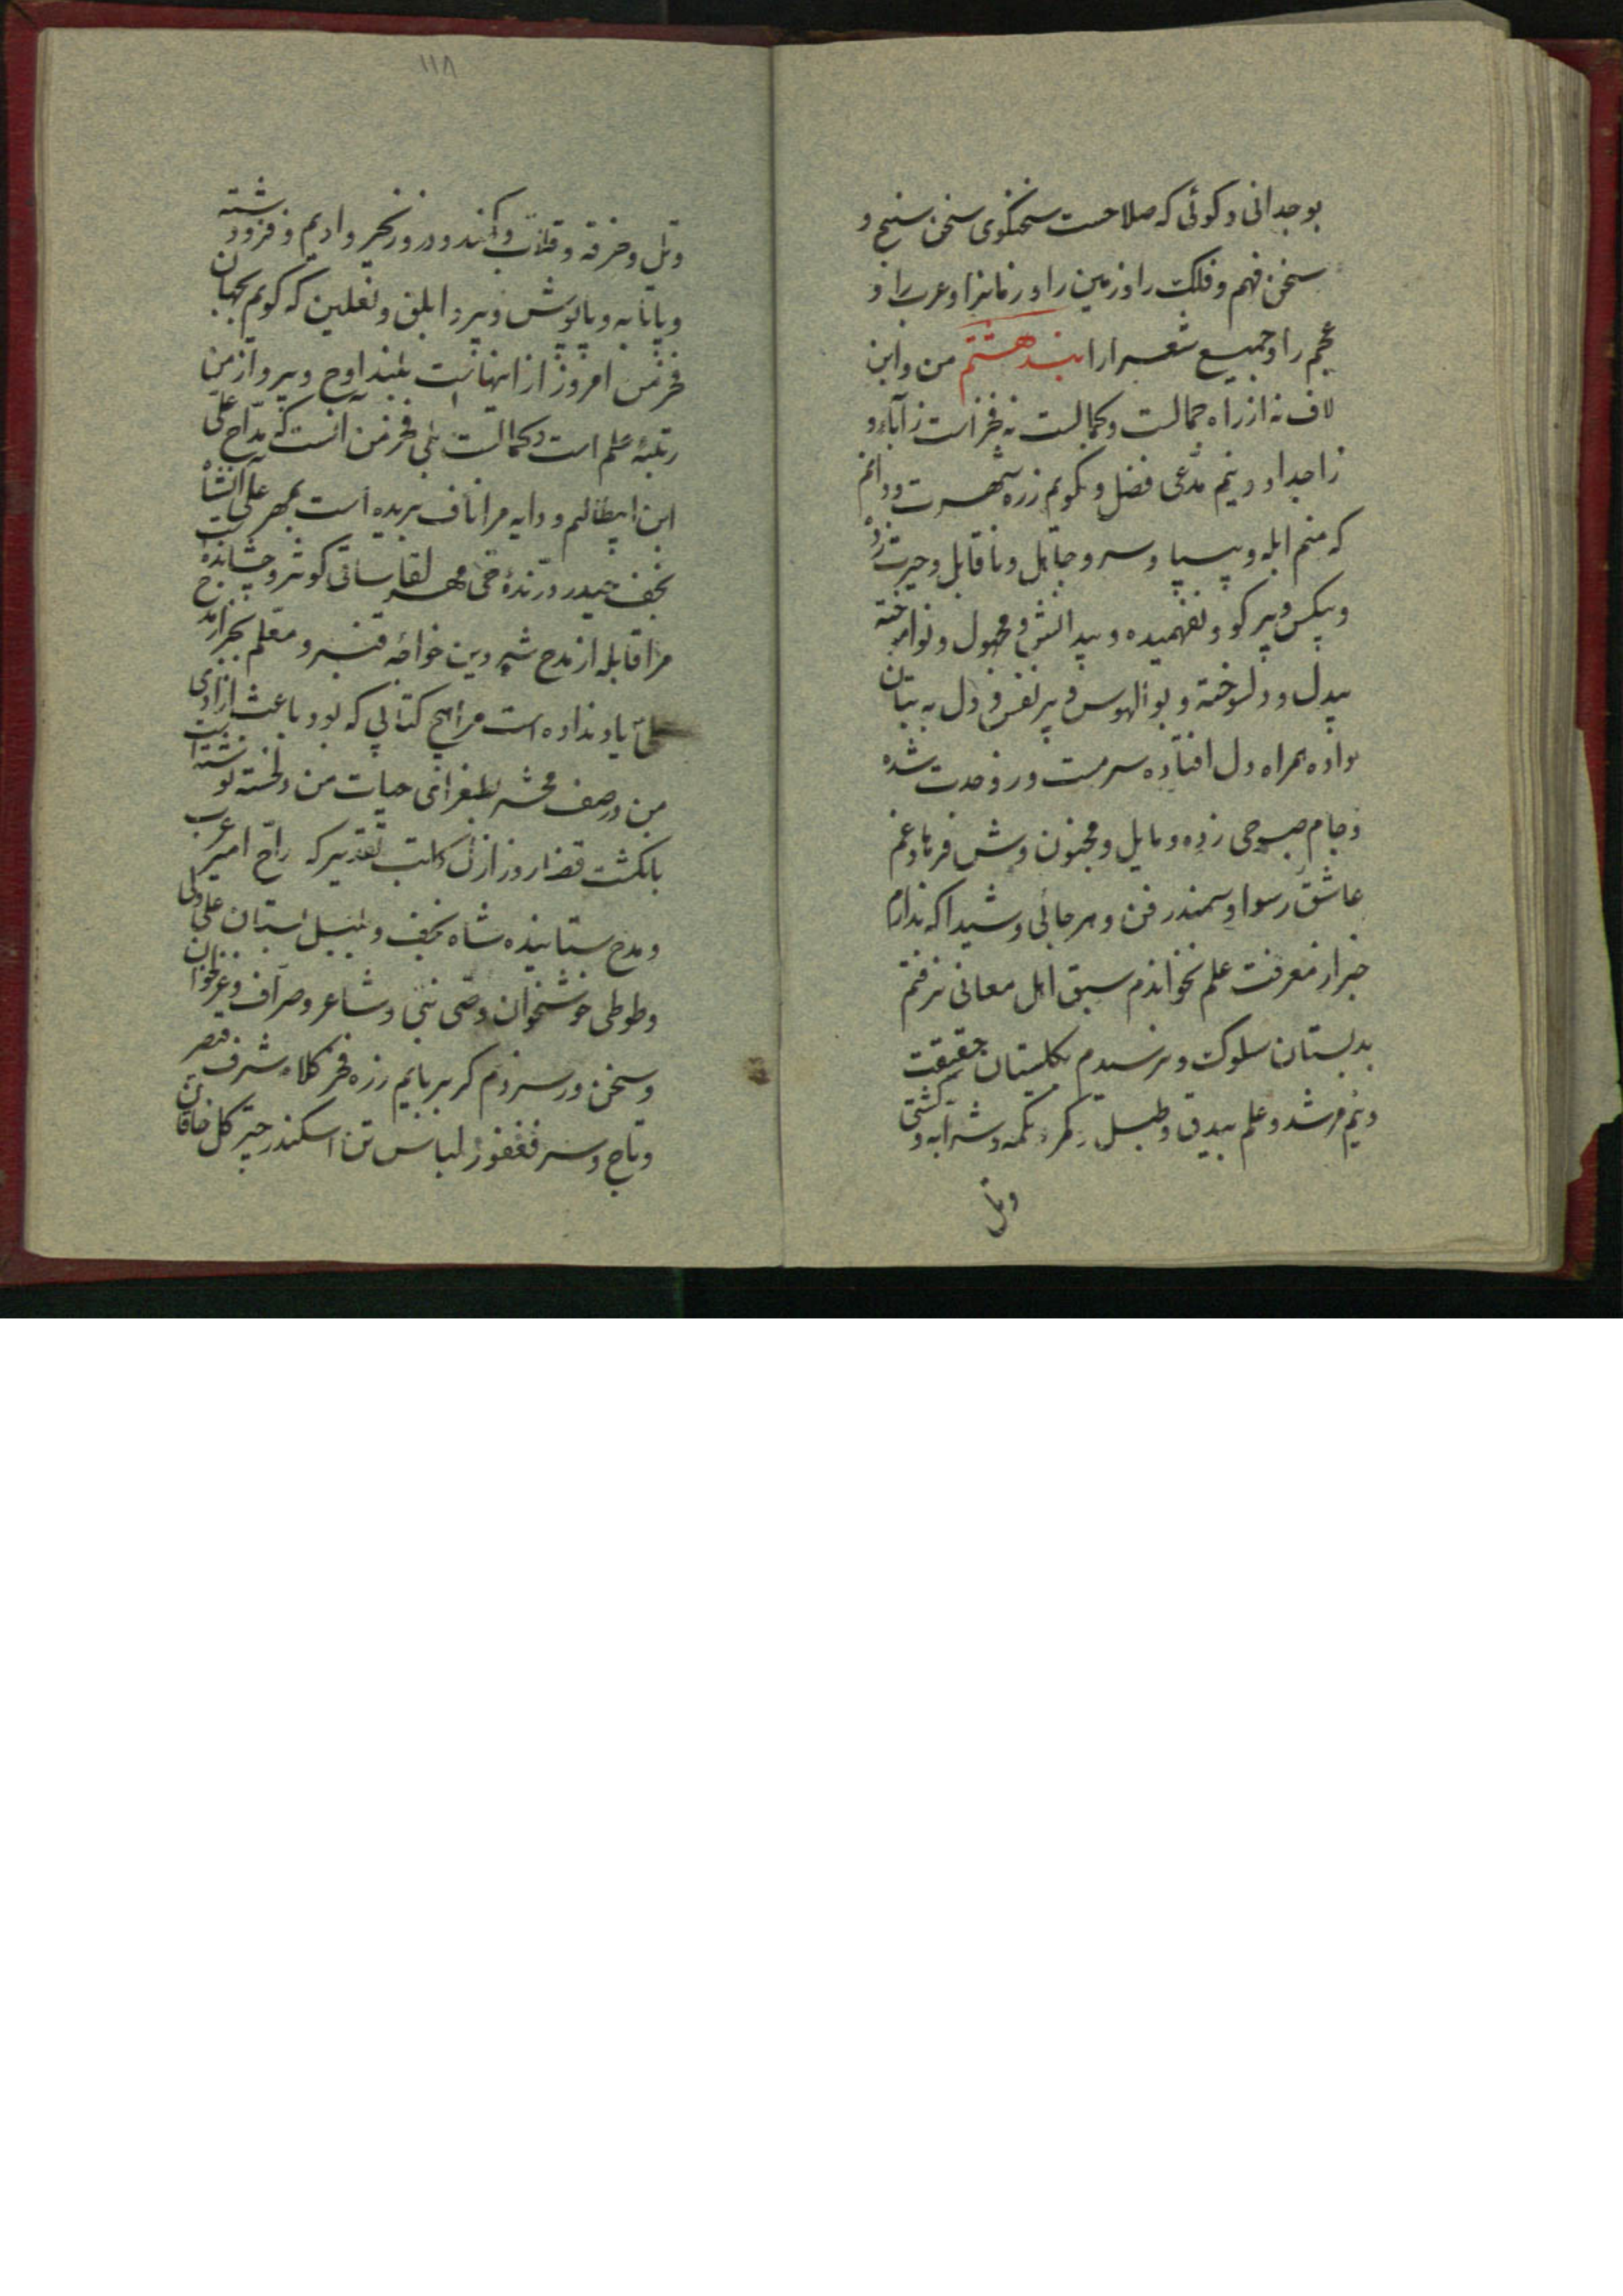 بوجدانی و کوئی که صلاحست سخنکوی سخن سنج و
سخن فهم و فلک را و زمین را و زمانرا و عرب را و
عجم را و جمیع شعرا را بند هشتم من و این
لاف نه از راه جمالست و کمالست نه فخر است ز آباء و
ز اجداد و نیم مدعی فضل و نکویم زره شهرت و دانم
که منم ابله و بیسپا و سر و جاهل و ناقابل و حیرت زده
و بیکس و پر کو و نفهمیده و بیدانش و مجهول و نوآموخته
بیدل و دلسوخته و بوالهوس و پر نفس و دل به بتان
داده همراه دل افتاده سرمست ور وحدت شده
و جام صبوحی زده و مایل و مجنون وش فرهاد غم
عاشق رسوا و سمندر فن و هر جائی و شیدا که ندارم
خبر از معرفت علم نخواندم سبق اهل معانی نرفتم
بدبستان سلوک و نرسیدم بکلستان حقیقت
و نیم مرشد و علم بیدق و طبل و کمر و تکمه و شرابه و کشتی
وتل
١١٨
وتل و خرقه و قلاب و کمند و در و زنجیر و ادیم و فرودشته
و پاتابه و پاپوش و پر و ابلق و نعلین که کویم بجهان
فخر من امروز از اینهاست بلند اوج و پرواز من
رتبهٔ علم است و کمالست بلی فخر من آنست که مداح علی
ابن ابیطالبم و دایه مرا ناف بریده است بمهر علی انشاه
نجف حیدر درندهٔ حی مهر لقا ساقی کوثر و چشانده
مرا قابله از مدح شه دین خواجه قنبر و معلم بجز از مدح
علی یاد نداده است مرا هیچ کتابی که بود باعث ازادی
من در صف محشر بطغرای حیات من دلخسته نوشته است
بانکشت قضا روز ازل کاتب تقدیر که راح امیر عرب
و مدح ستاینده شاه نجف و بلبل بستان علی ولی
و طوطی خوشخوان وصی نبی و شاعر و صراف و غزلخوان
و سخن ور سزدم کر بربایم زره فخر کلاه شرف قیصر
و تاج و سر فغفور لباس تن اسکندر چتر کل خاقان